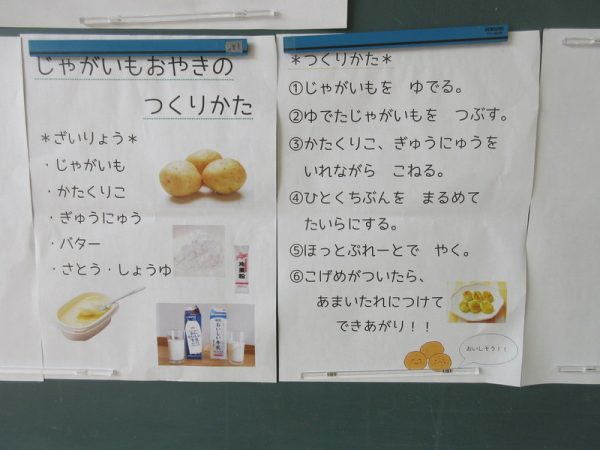 じゃがいもおやきの
つくりかた
＊ざいりょう＊
・じゃがいも
・かたくりこ
・ぎゅうにゅう
・バター
・さとう・しょうゆ
片栗粉
おいしい牛乳
＊つくりかた＊
①じゃがいもを　ゆでる。
②ゆでたじゃがいもを　つぶす。
③かたくりこ、ぎゅうにゅうを
いれながら　こねる。
④ひとくちぶんを　まるめて
たいらにする。
⑤ほっとぷれーとで　やく。
⑥こげめがついたら、
あまいたれにつけて
できあがり！！
おいしそう！！